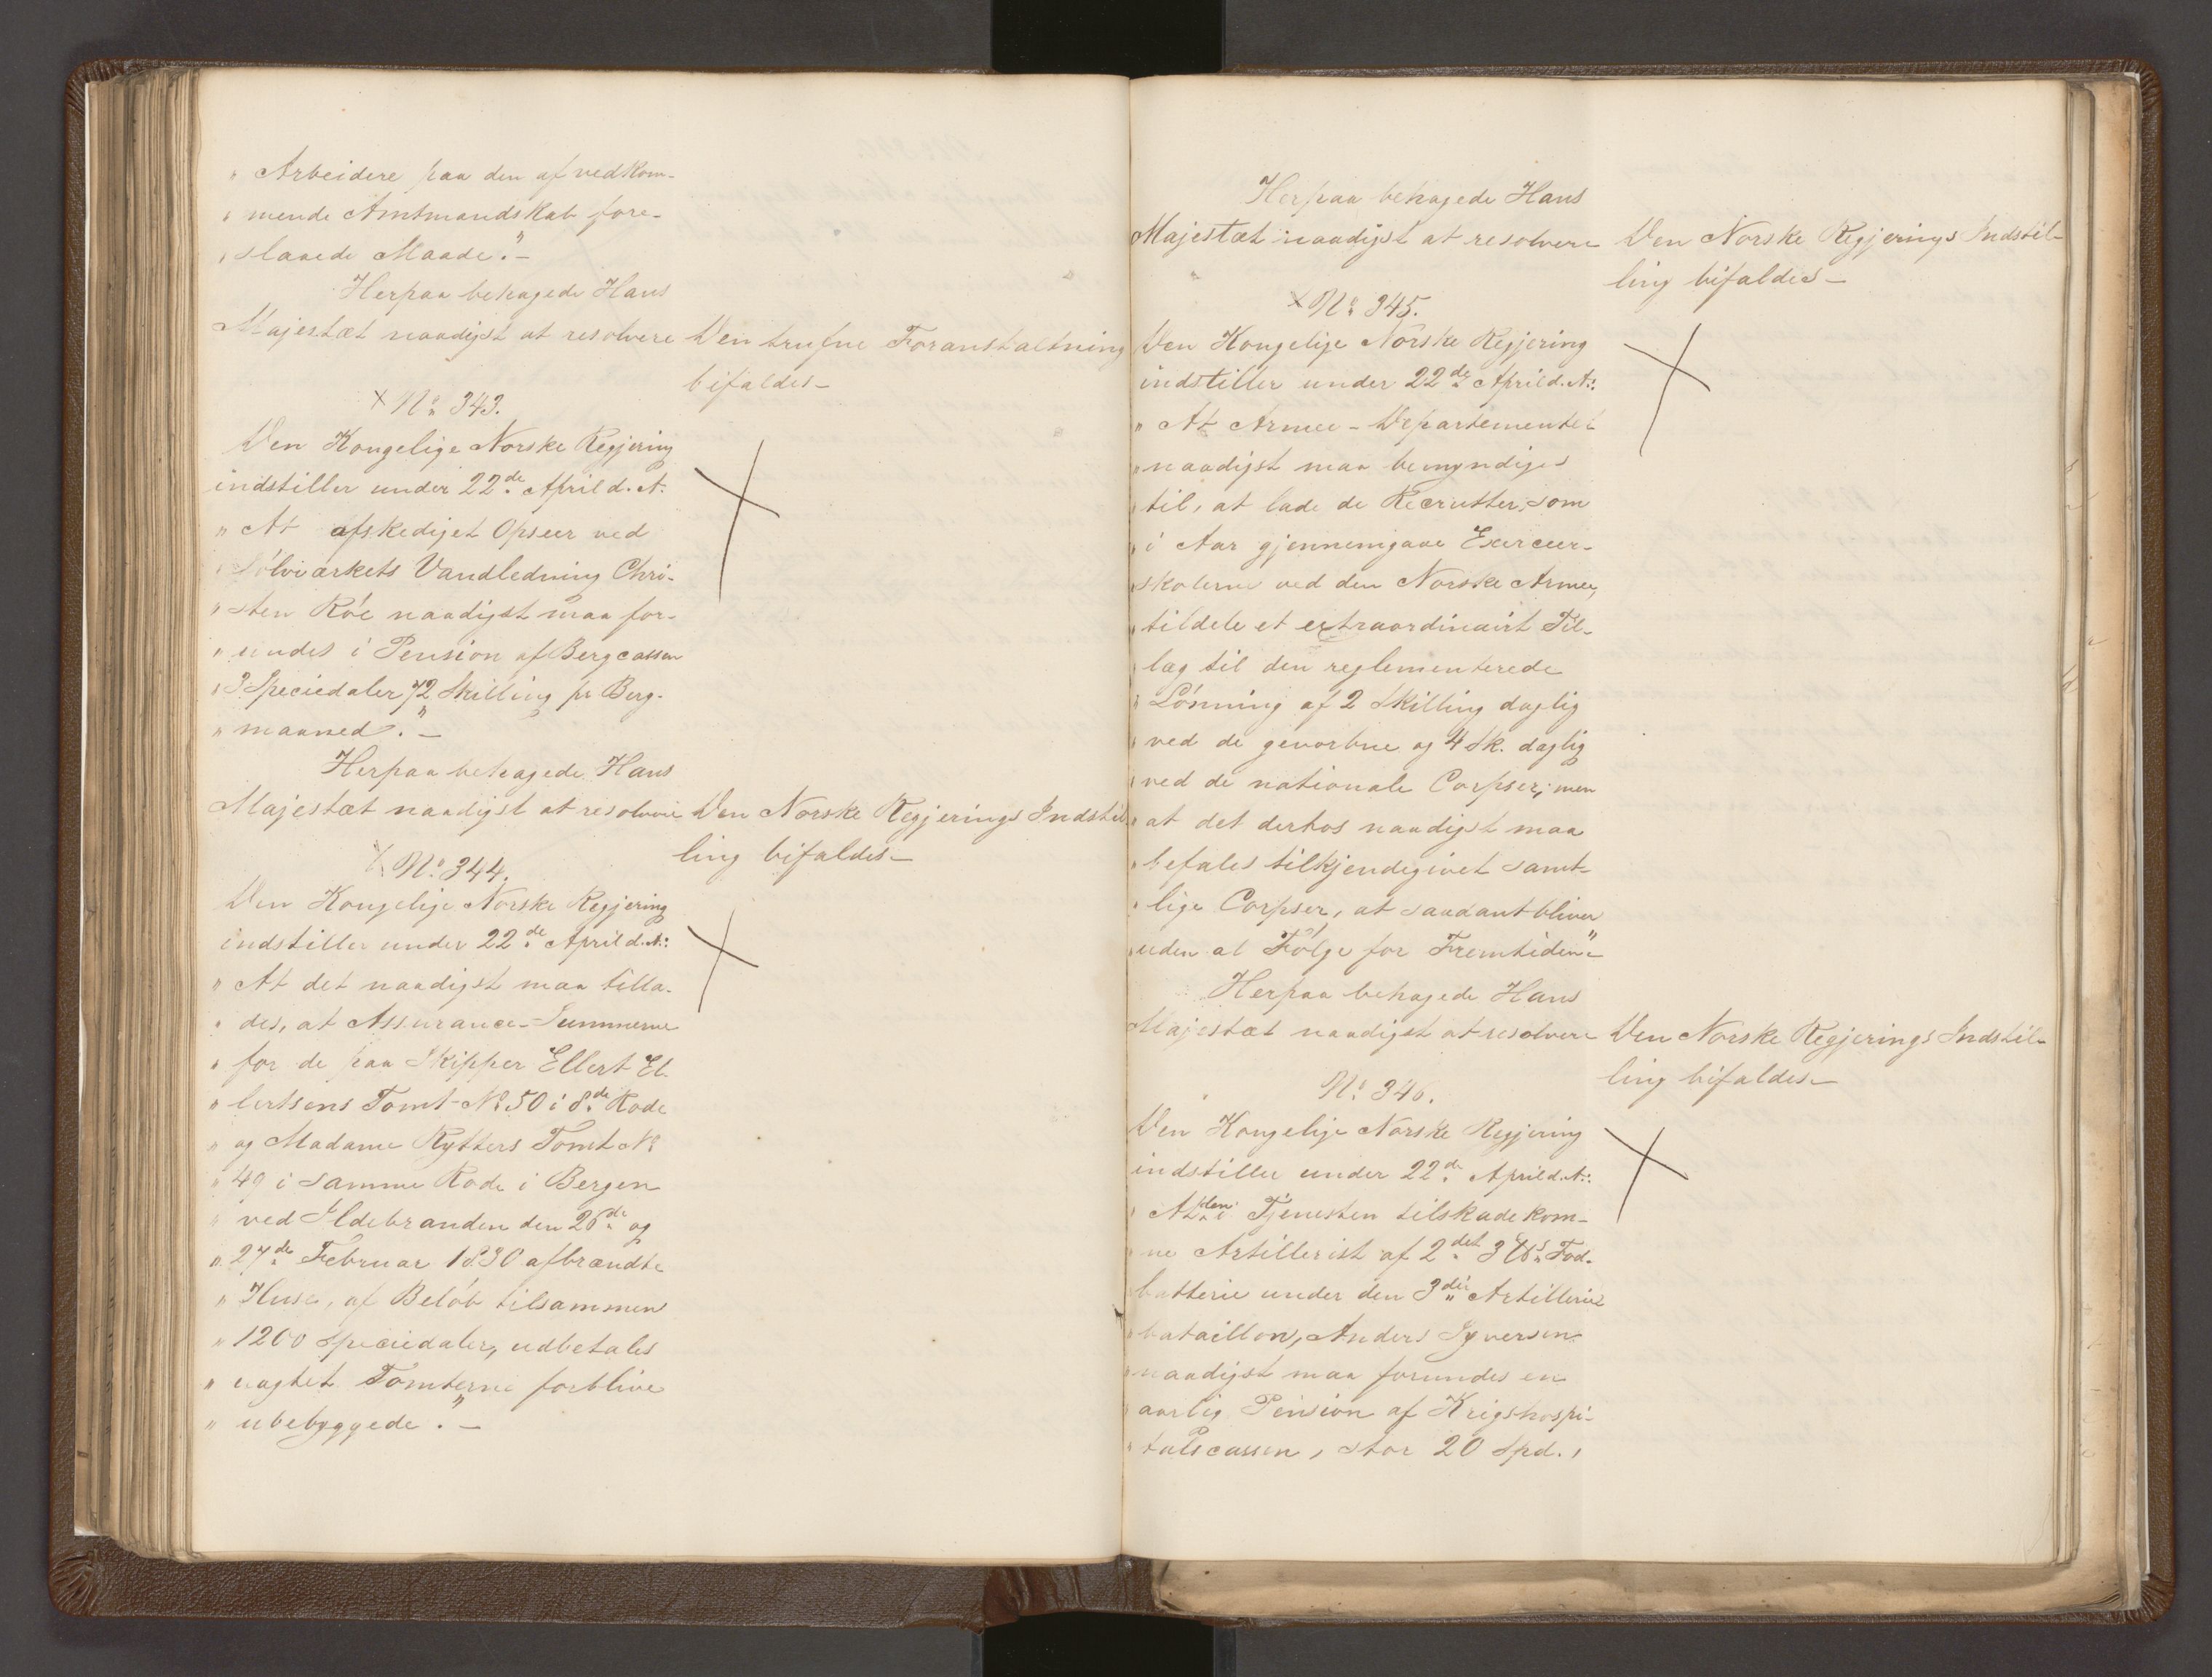 " Arbeidere paa den af vedkom-
" mende Amtmandskab fore-
" slaaede Maade." -
Herpaa behagede Hans
Majestæt naadigst at resolvere Den trufne Foranstaltning
bifaldes -
x No 343.
Den Kongelige Norske Regjering
indstiller under 22de April d. A:
" At afskediget Opseer ved
" Sölvværkets Vandledning Chri-
" sten Röe naadigst maa for-
" undes i Pension af Bergcassen
" 3 Speciedaler 72 Skilling pr Berg-
" maaned." -
Herpaa behagede Hans
Majestæt naadigst at resolvere Den Norske Regjerings Indstil
ling bifaldes -
x No 344.
Den Kongelige Norske Regjering
indstiller under 22de April d. A:
" At det naadigst maa tilla-
" des, at Assurance-Summerne
" for de paa Skipper Ellert El-
" lertsens Tomt No 50 i 8de Rode
" og Madame Rytters Tomt No
" 49 i samme Rode i Bergen
" ved Ildebranden den 26de og
" 27de Februar 1830 afbrændte
" Huse, af Belöb tilsammen
" 1200 Speciedaler, udbetales
" uagtet Tomterne forblive
" ubebyggede." -
Herpaa behagede Hans
Majestæt naadigst at resolvere Den Norske Regjerings Indstil-
ling bifaldes -
x No 345.
Den Kongelige Norske Regjering
indstiller under 22de April d. A:
" At Armee-Departementet
" naadigst maa bemyndiges
" til, at lade de Recrutter, som
" i Aar gjennemgaae Exerceer-
" skolerne ved den Norske Armee,
" tildele et extraordinairt Til-
" læg til den reglementerede
" Lönning af 2 Skilling daglig
" ved de gevorbne og 4 Sk. daglig
" ved de nationale Corpser; men
" at det derhos naadigst maa
" befales tilkjendegivet samt-
" lige Corpser, at saadant bliver
" uden al Fölge for Fremtiden" -
Herpaa behagede Hans
Majestæt naadigst at resolvere Den Norske Regjerings Indstil-
ling bifaldes -
No 346.
Den Kongelige Norske Regjering
indstiller under 22de April d. A:
" At den i Tjenesten tilskadekom-
" ne Artillerist af 2det 3 Fod-
" batterie under den 3die Artillerie
" bataillon, Anders Syversen
" naadigst maa forundes en
" aarlig Pension af Krigshospi-
" talscassen, stor 20 Spd.,